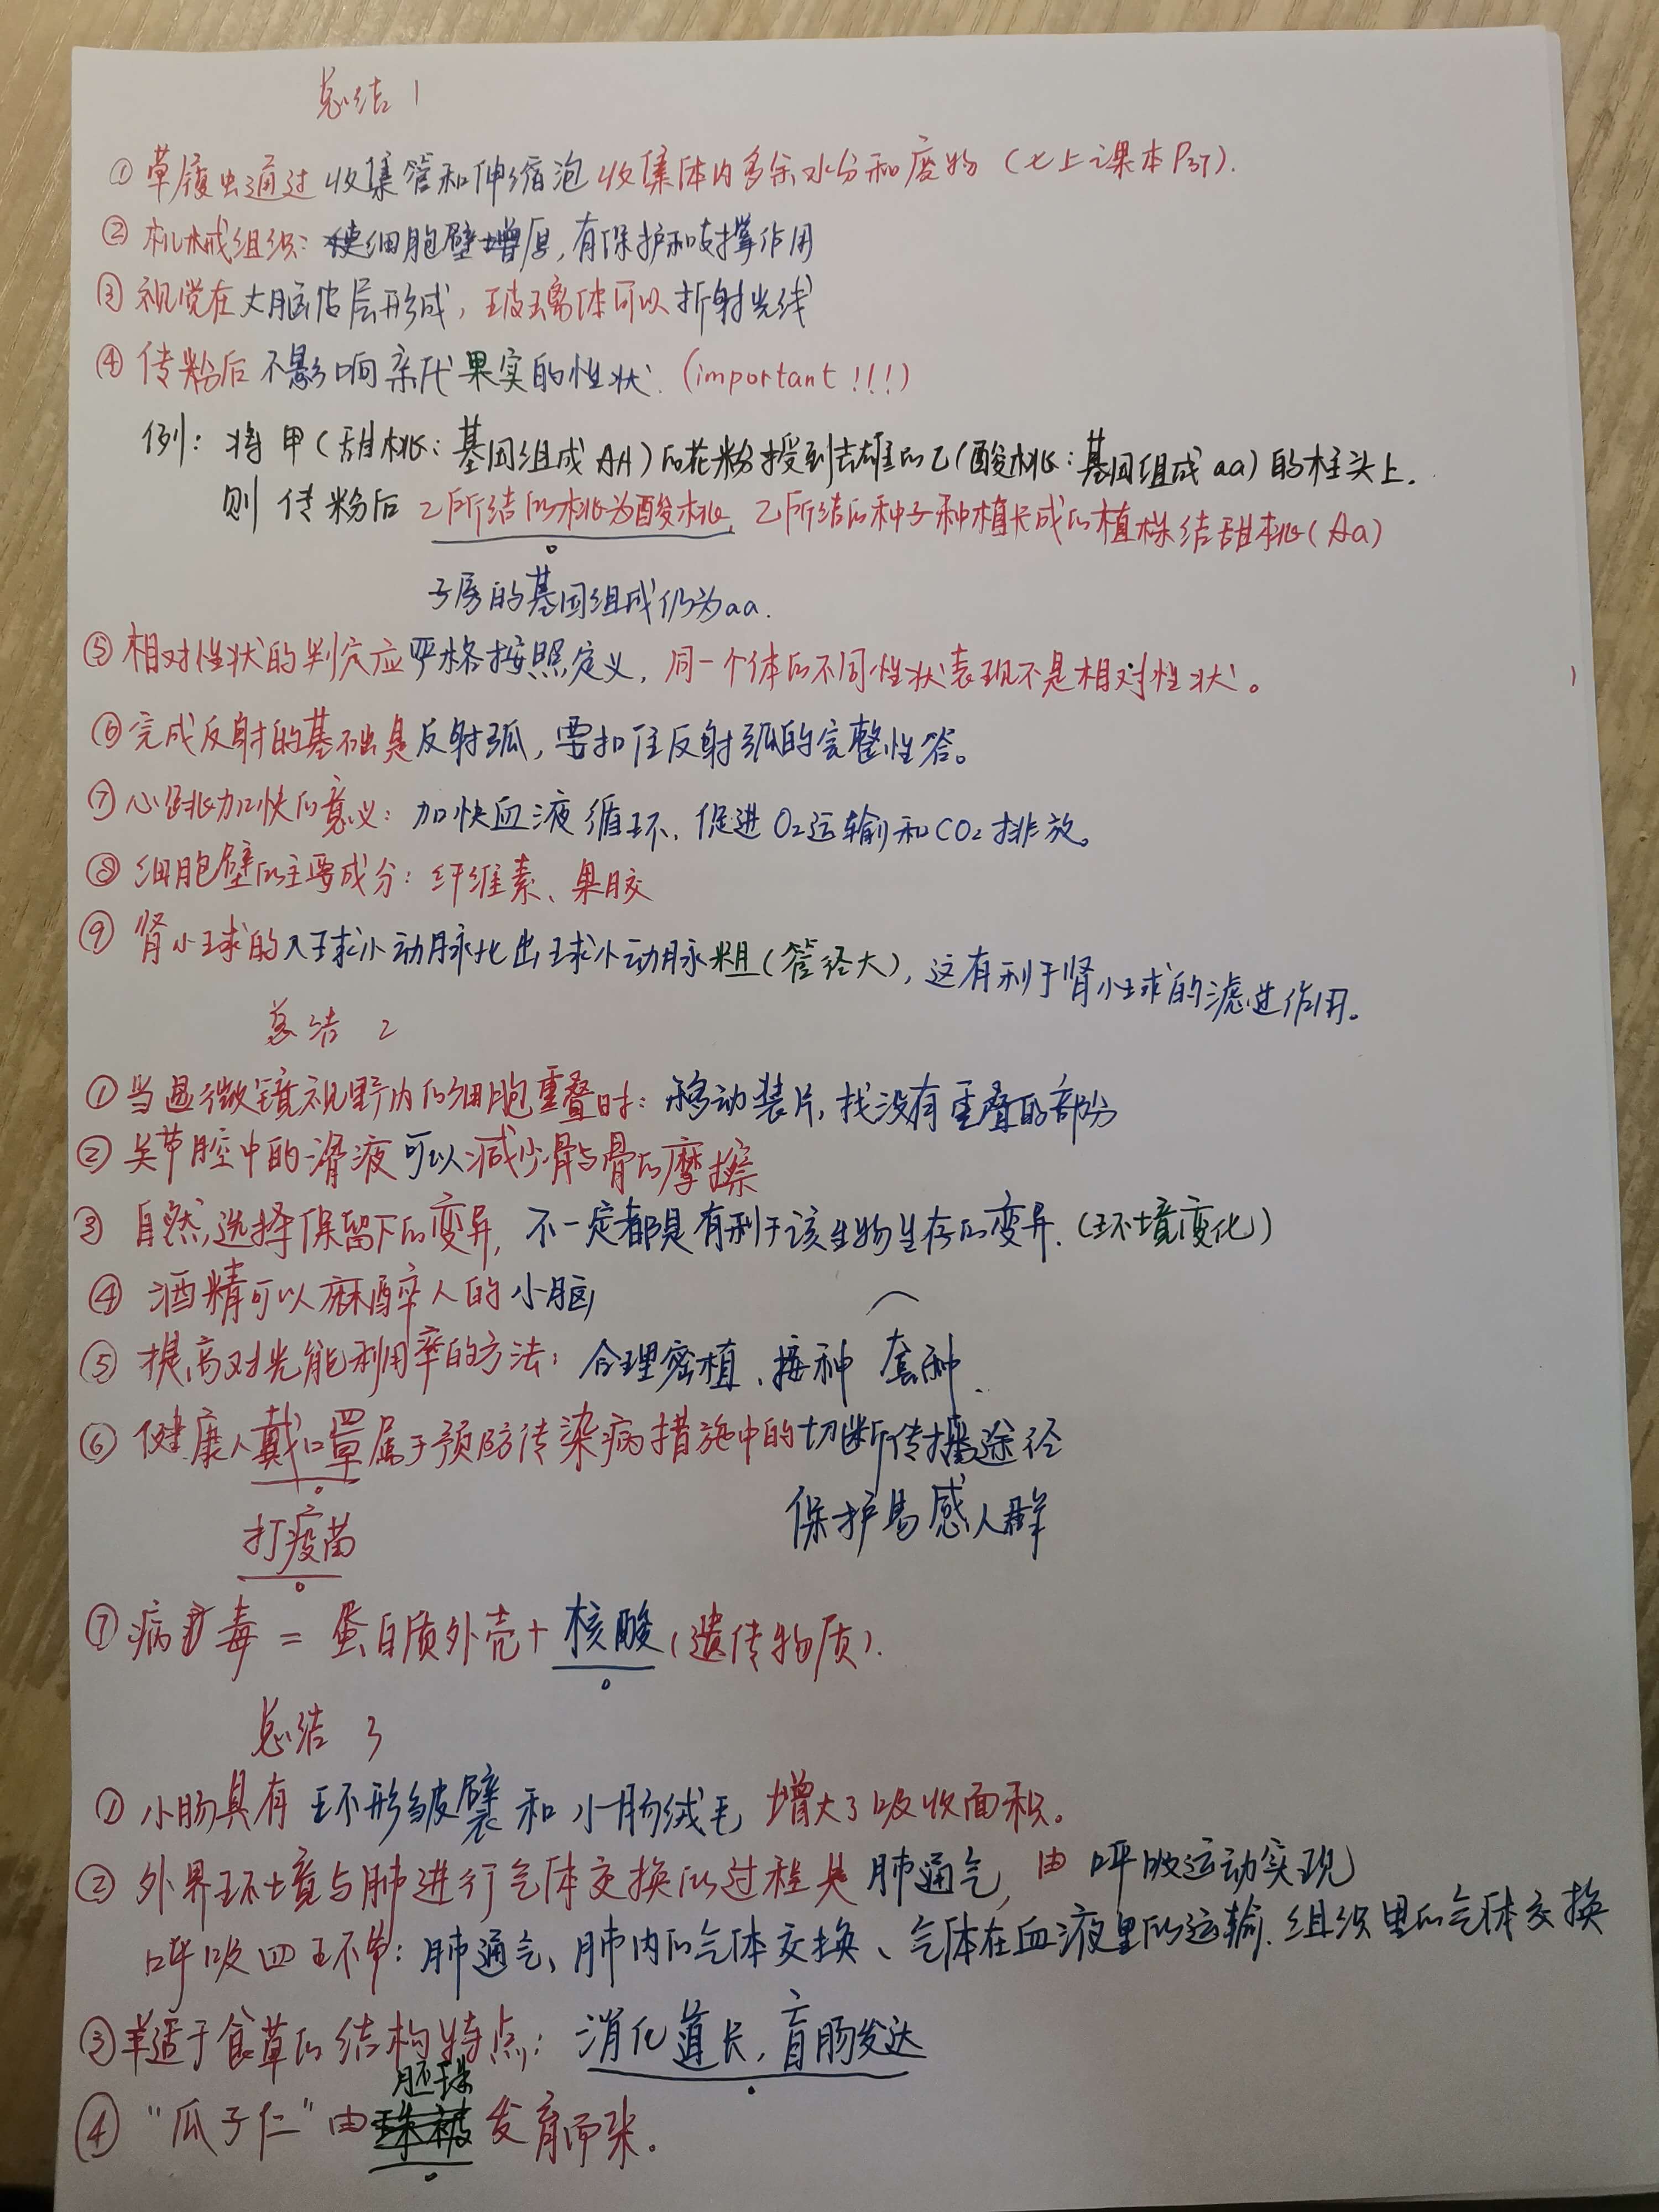 总结 1
① 草履虫通过收集管和伸缩泡收集体内多余水分和废物（七上课本P37）.
② 机械组织：使细胞壁增厚，有保护和支撑作用
③ 视觉在大脑皮层形成，玻璃体可以折射光线
④ 传粉后不影响亲代果实的性状.（important！！！）
例：将甲（甜桃：基因组成AA）的花粉授到去雄的乙（酸桃：基因组成aa）的柱头上.
则传粉后乙所结的桃为酸桃，乙所结的种子种植长成的植株结甜桃（Aa）
子房的基因组成仍为aa.
⑤ 相对性状的判定应严格按照定义，同一个体的不同性状表现不是相对性状。
⑥ 完成反射的基础是反射弧，要扣住反射弧的完整性答。
⑦ 心跳加快的意义：加快血液循环，促进O2运输和CO2排放。
⑧ 细胞壁的主要成分：纤维素、果胶
⑨ 肾小球的入球小动脉比出球小动脉粗（管径大），这有利于肾小球的滤过作用。
总结 2
① 当显微镜视野内的细胞重叠时：移动装片，找没有重叠的部分
② 关节腔中的滑液可以减少骨与骨的摩擦
③ 自然选择保留下的变异，不一定都是有利于该生物生存的变异.（环境变化）
④ 酒精可以麻醉人的小脑
⑤ 提高对光能利用率的方法：合理密植、接种 套种、
⑥ 健康人戴口罩属于预防传染病措施中的切断传播途径
打疫苗 保护易感人群
⑦ 病毒 = 蛋白质外壳+核酸（遗传物质）.
总结 3
① 小肠具有环形皱襞和小肠绒毛增大了吸收面积。
② 外界环境与肺进行气体交换的过程是肺通气，由呼吸运动实现
呼吸四环节：肺通气、肺内的气体交换、气体在血液里的运输、组织里的气体交换
③ 羊适于食草的结构特点：消化道长，盲肠发达
胚珠
④ “瓜子仁”由珠被发育而来。